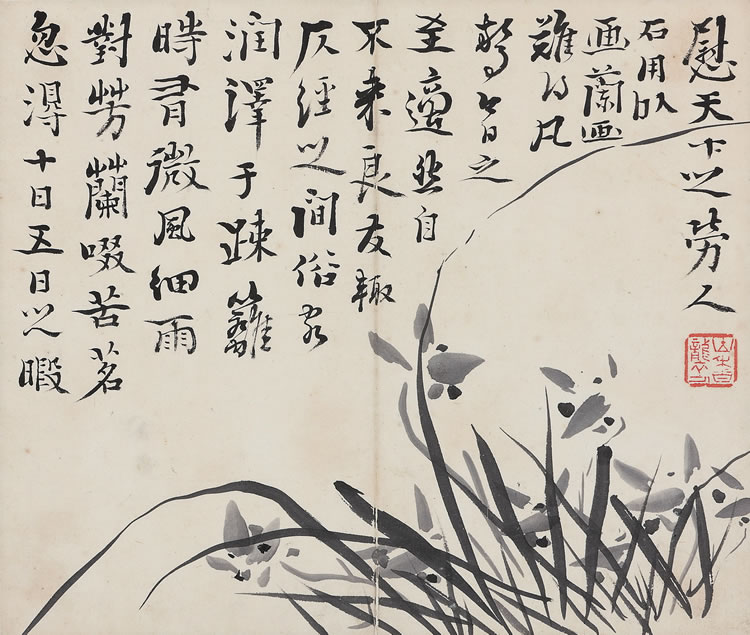 忽得十日五日之暇
對芳蘭啜苦茗
時有微風細雨
潤澤于疎籬
仄經之間俗客
不来良友輙
至適然自
驚今日之
難得凡
画蘭画
石用以
慰天下之勞人